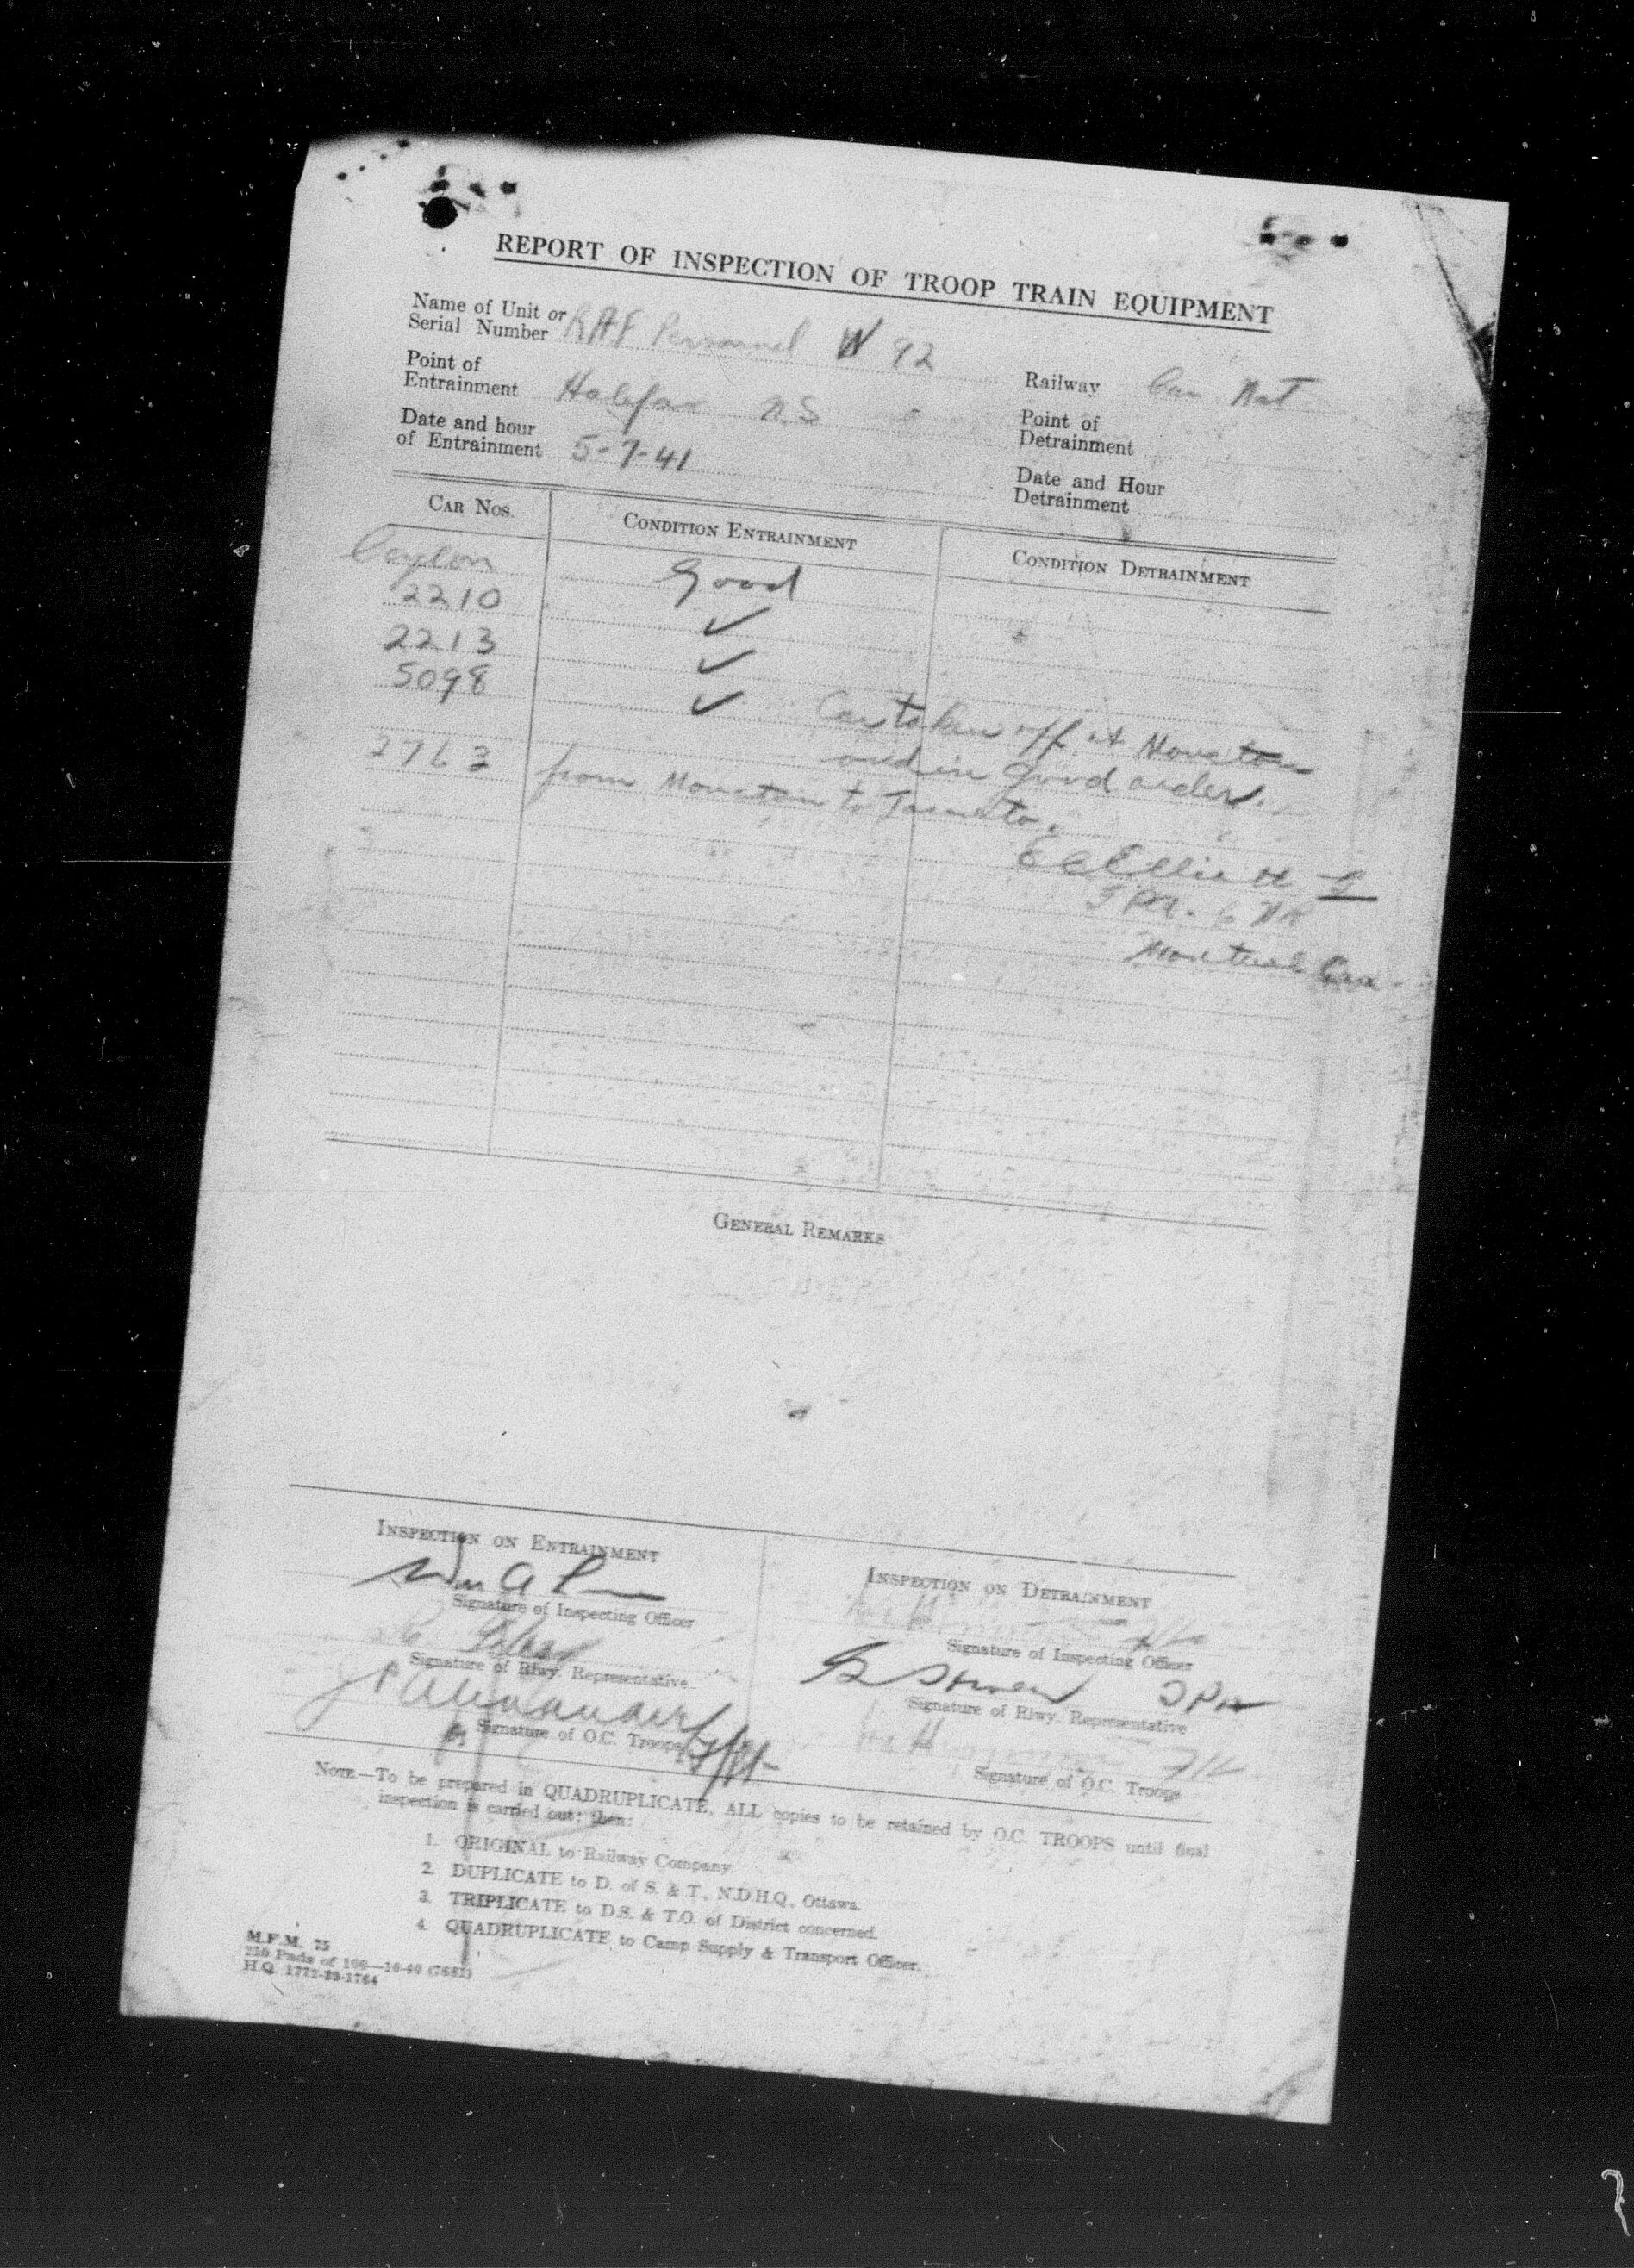 REPORT OF INSPECTION OF TROOP TRAIN EQUIPMENT
Name of Unit or
Serial Number RAF Personnel W 92
Railway Can Nat
Point of
Entrainment Halifax N.S
Point of
Detrainment
Date and hour
of Entrainment 5-7-41
Date and Hour
Detrainment
CAR NOS. CONDITION ENTRAINMENT CONDITION DETRAINMENT
Ceylon Good
2210 ✓
2213 ✓
5098 ✓ Car taken off at Moncton
and in good order.
2763 from Moncton to Toronto.
E C Elliott
T.P.R. C N R
Montreal Can
GENERAL REMARKS
INSPECTION ON ENTRAINMENT
INSPECTION ON DETRAINMENT
Wm A
Signature of Inspecting Officer
Signature of Inspecting Officer
Signature of Rlwy. Representative
Signature of Rlwy. Representative
J P Alexander
Signature of O.C. Troops
Signature of O.C. Troops
NOTE—To be prepared in QUADRUPLICATE, ALL copies to be retained by O.C. TROOPS until final
inspection is carried out; then:
1. ORIGINAL to Railway Company.
2. DUPLICATE to D. of S. & T., N.D.H.Q., Ottawa.
3. TRIPLICATE to D.S. & T.O. of District concerned.
4. QUADRUPLICATE to Camp Supply & Transport Officer.
M.F.M. 75
250 Pads of 100—10-40 (7681)
H.Q. 1772-39-1764